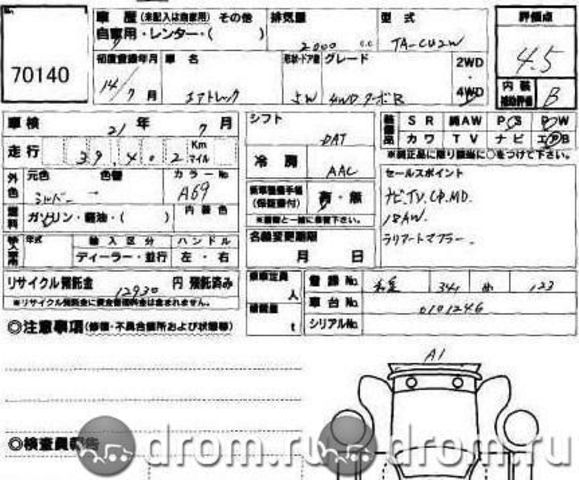 車歴(未記入は自家用) その他 排気量 型式 評価点
自家用・レンター・( ) 2000 c.c TA-CU2W 4.5
70140
初度登録年月 車名 形状・ドア数 グレード 2WD
14/7月 エアトレック 5W 4WDターボR ・4WD
内装補助評価 B
車検 21年 7月 シフト DAT 装備品 SR 純AW PS PW
走行 39,402 Km マイル 冷房 AAC カワ TV ナビ エアB
※純正品に限り該当に○をつけて下さい。
外色 元色 色替 カラーNo
シルバー A69
新車整備手帳(保証書付) 有・無
※書類と一緒に保管下さい。
セールスポイント
ナビ,TV,CD,MD.
18AW.
ラリーアートマフラー.
燃料 ガソリン・軽油・( ) 内装色
名義変更期限
月 日
輸入車用 年式 輸入区分 ハンドル
ディーラー・並行 左・右
リサイクル預託金 12930 円 預託済み
※リサイクル預託金に資金管理料金は含まれません。
乗車定員 人 登録No. 341 め 123
積載量 t 車台No. 0101246
シリアルNo.
◎注意事項(修復・不具合箇所および状態等)
A1
◎検査員報告
drom.ru drom.ru